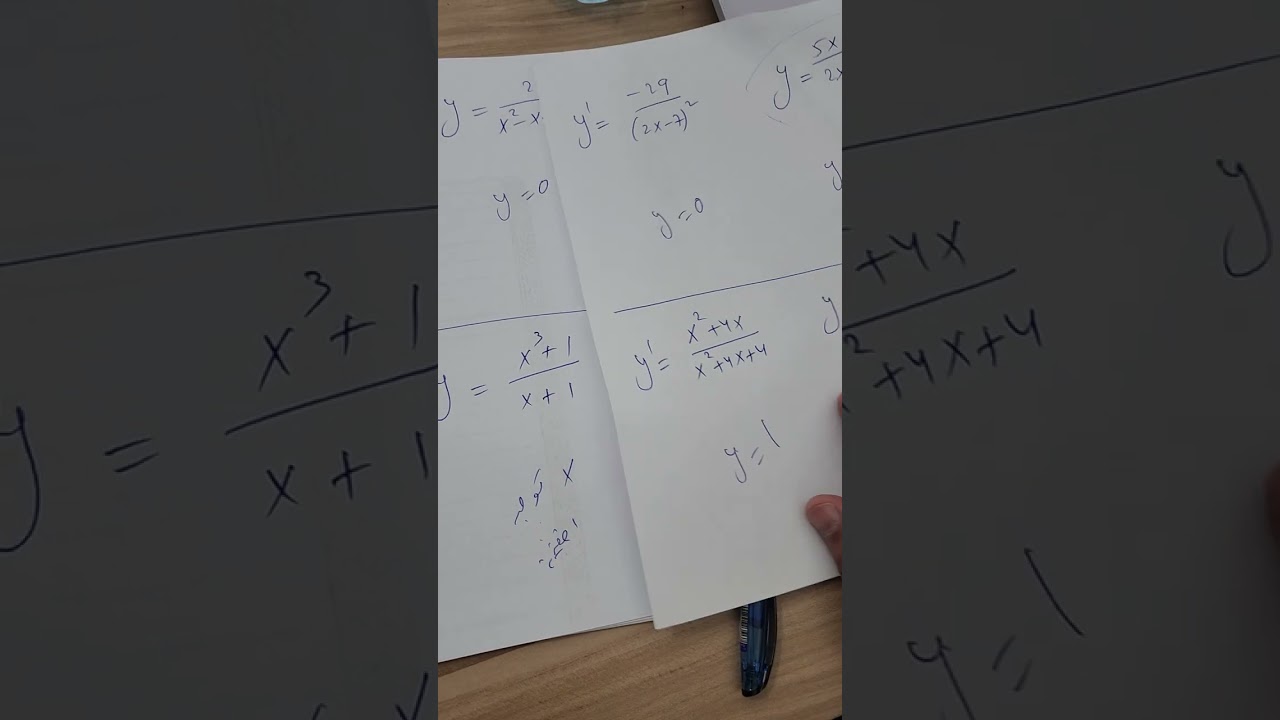 y = 2/(x² - x
y = 0
y = (x³ + 1)/(x + 1)
x
y' = -29/(2x-7)²
y = 0
y' = (x² + 4x)/(x² + 4x + 4)
y = 1
y = 5x/2x
y
y